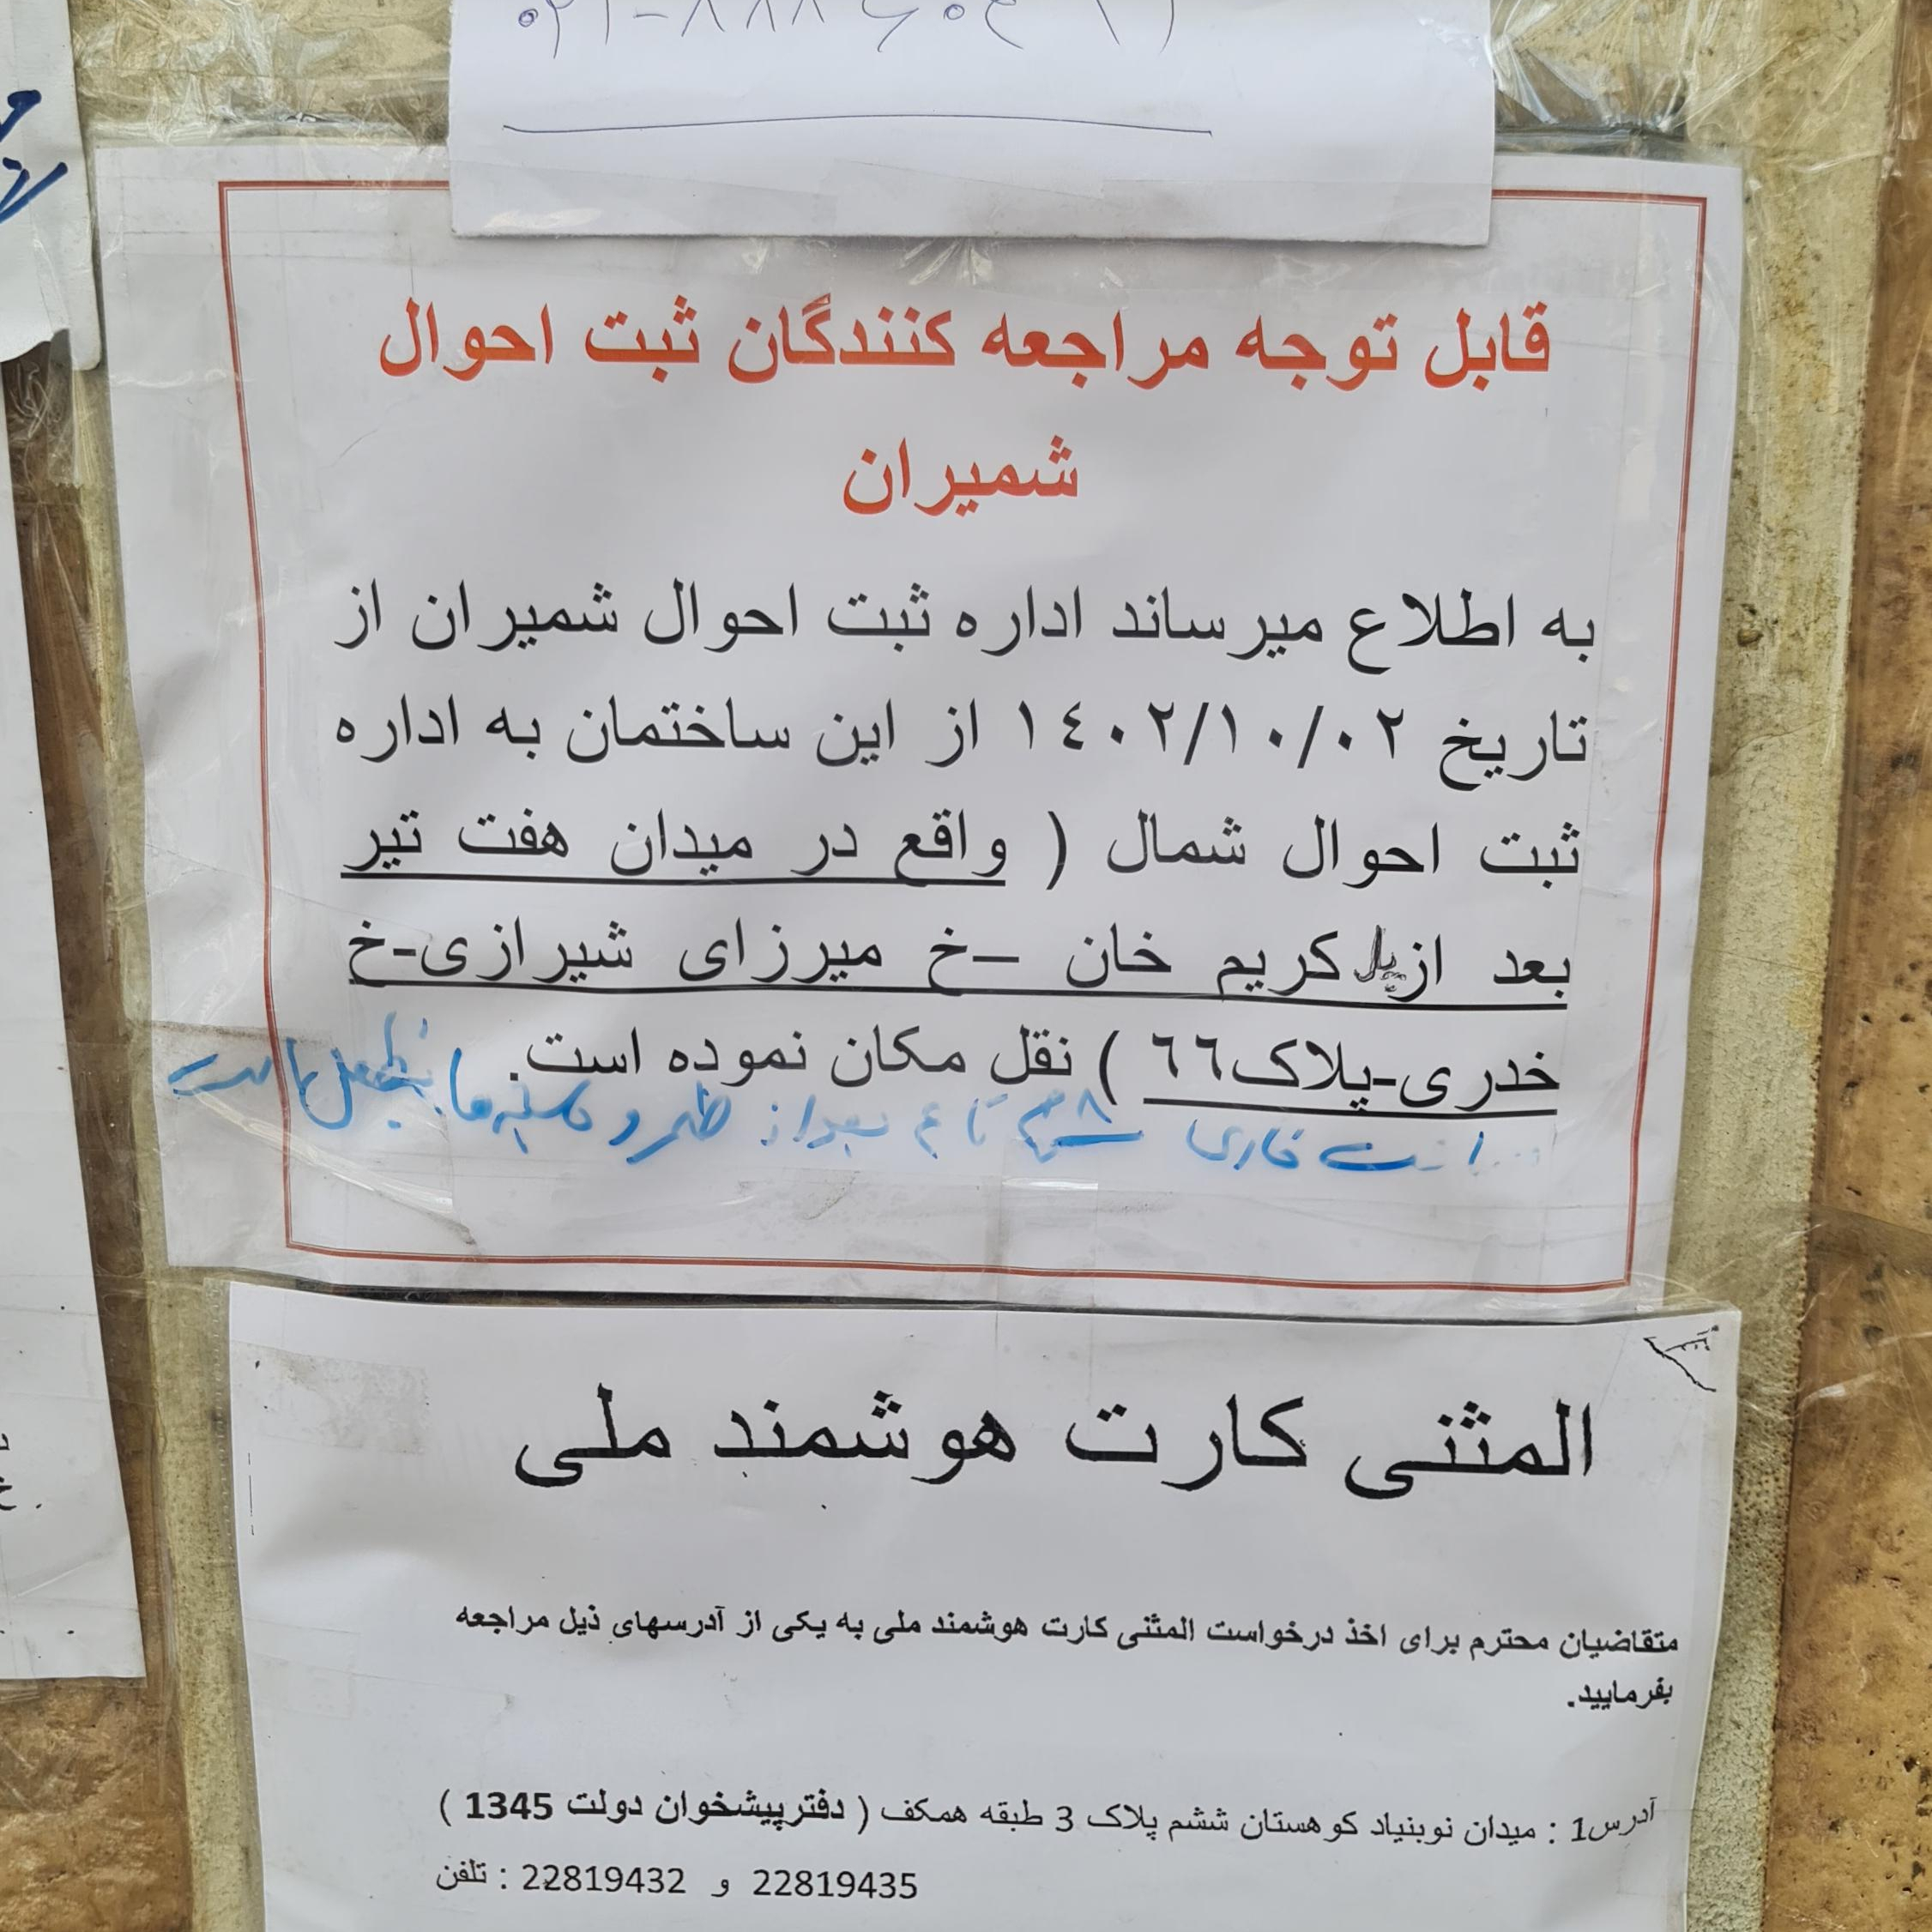 قابل توجه مراجعه کنندگان ثبت احوال
شمیران
به اطلاع میرساند اداره ثبت احوال شمیران از
تاریخ ١٤٠٢/١٠/٠٢ از این ساختمان به اداره
ثبت احوال شمال ( واقع در میدان هفت تیر
بعد از پل کریم خان –خ میرزای شیرازی-خ
خدری-پلاک٦٦ ) نقل مکان نموده است.
تا ۴ بعد از ظهر و
المثنی کارت هوشمند ملی
متقاضیان محترم برای اخذ درخواست المثنی کارت هوشمند ملی به یکی از آدرسهای ذیل مراجعه
بفرمایید.
آدرس1 : میدان نوبنیاد کوهستان ششم پلاک 3 طبقه همکف ( دفترپیشخوان دولت 1345 )
تلفن : 22819432 و 22819435